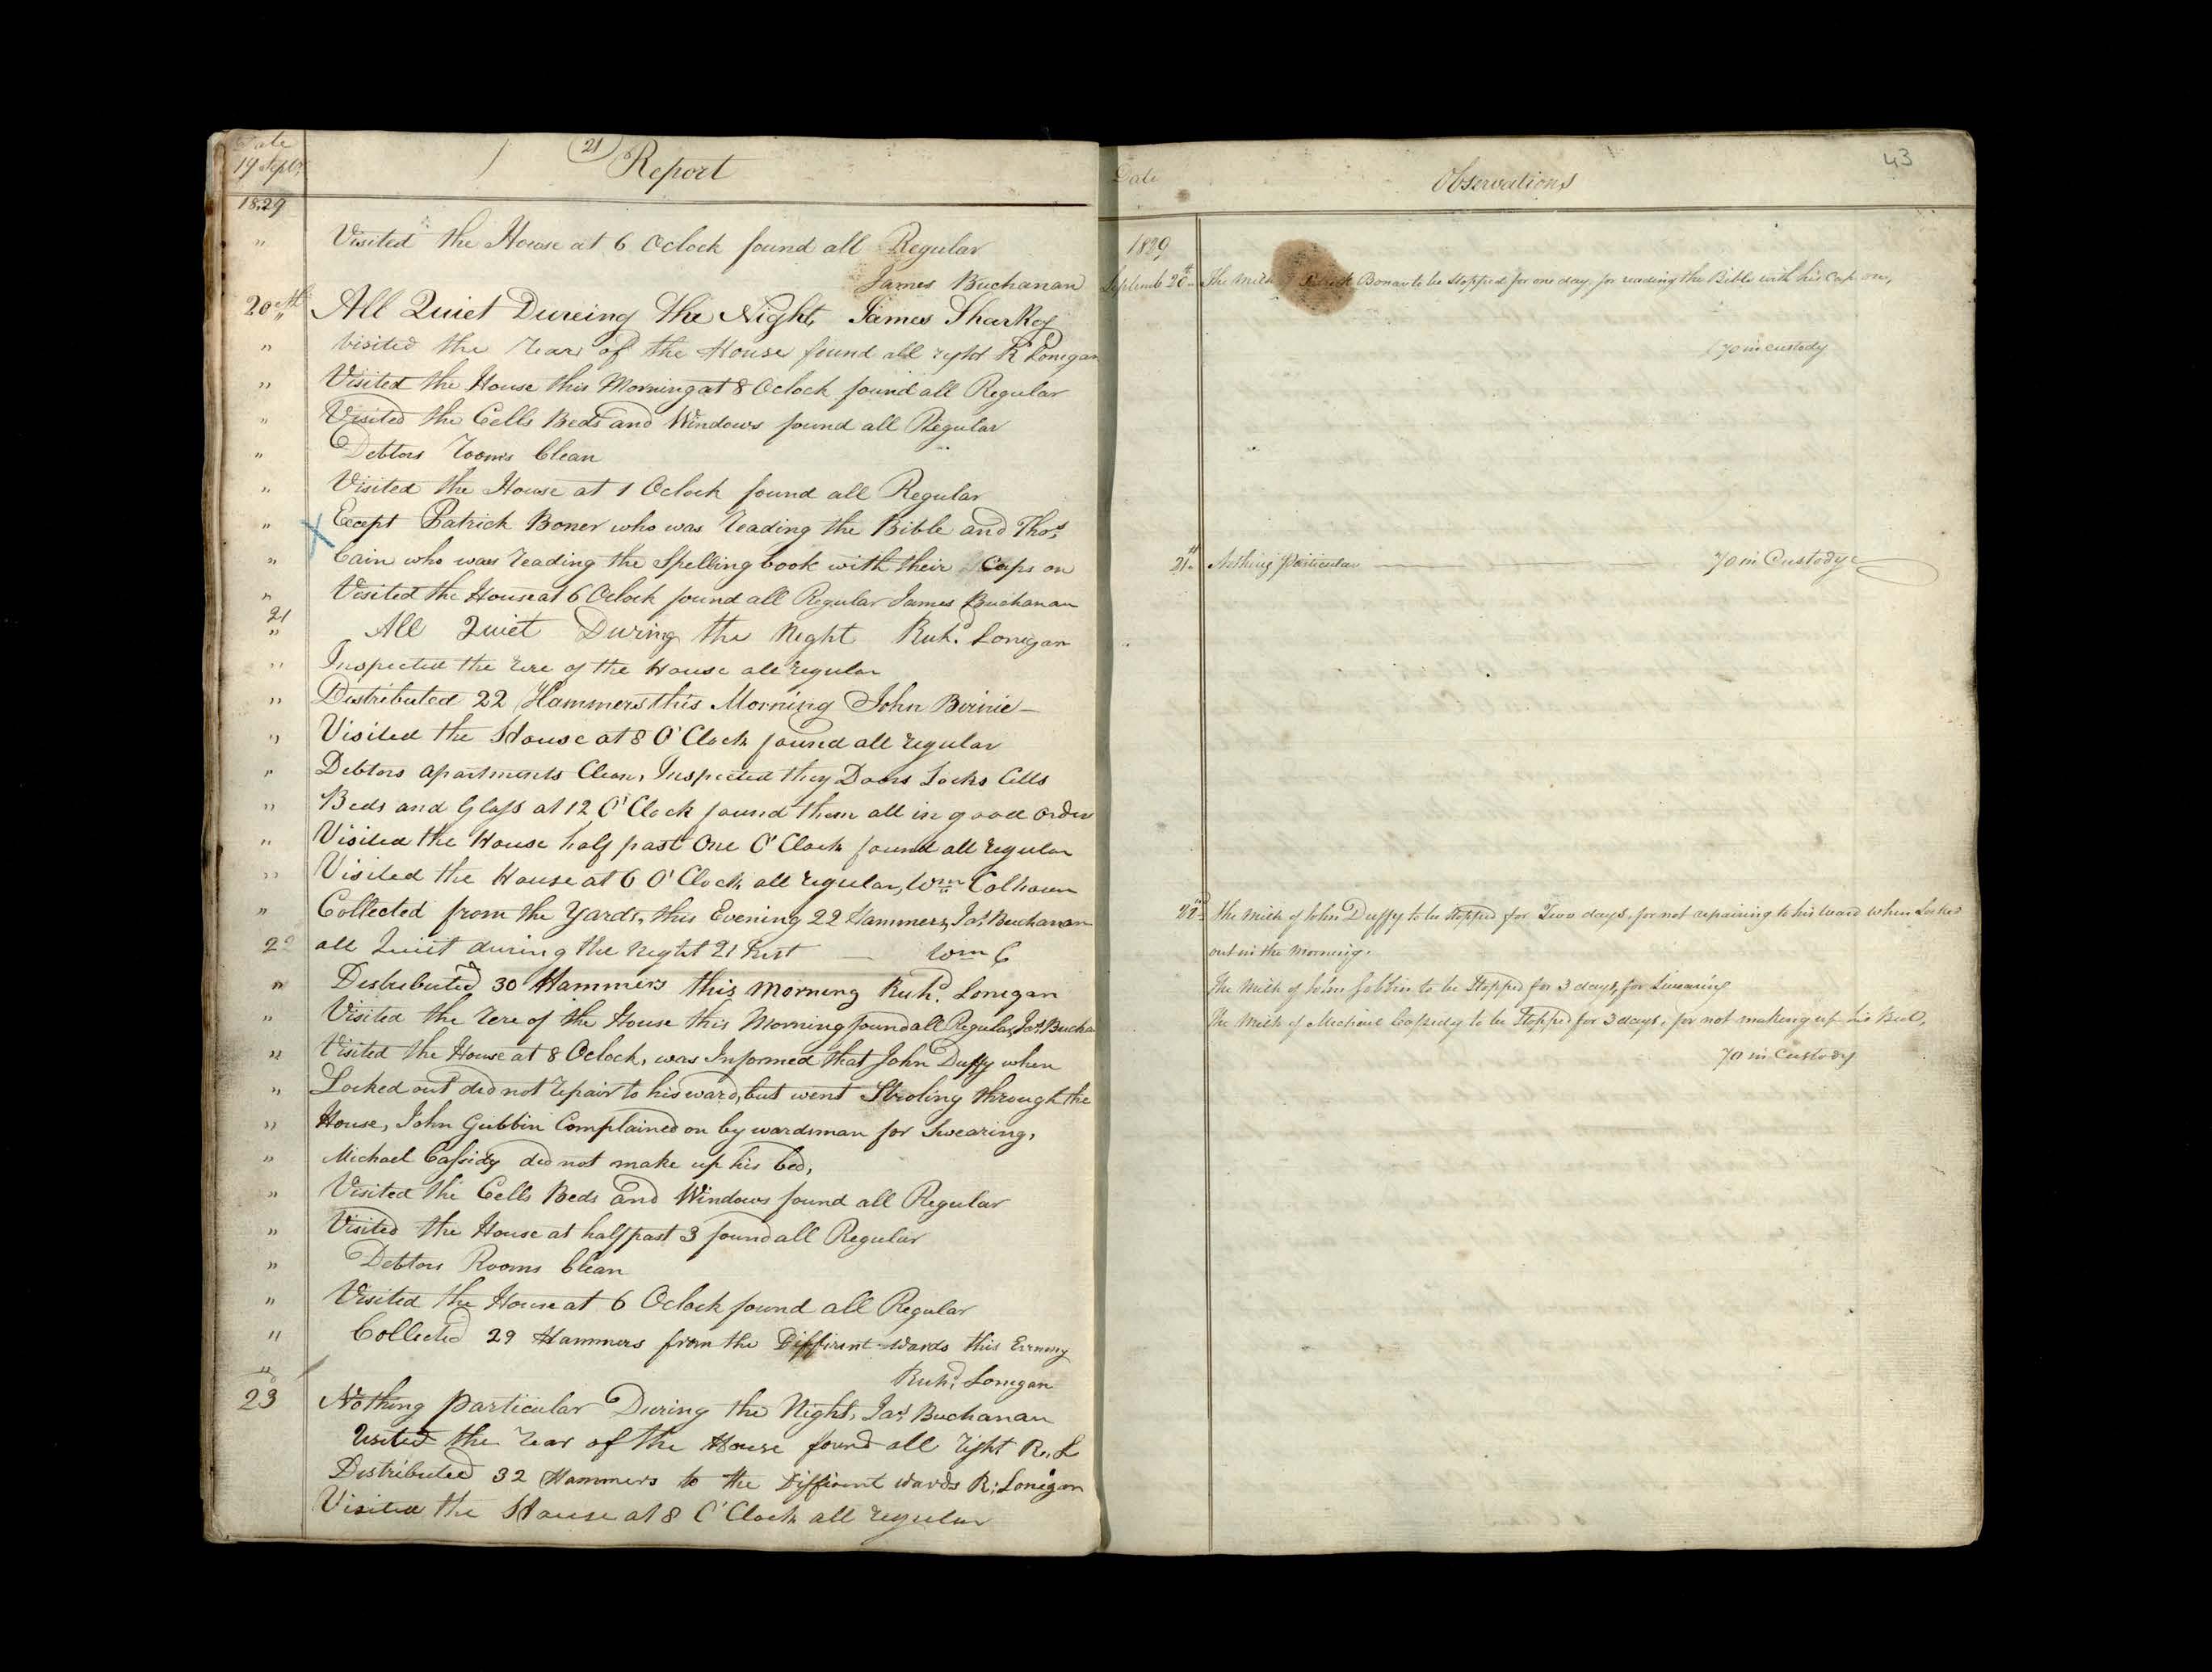 Date
19 Septr
1829
21
Report
" Visited the House at 6 Oclock found all Regular
James Buchanan
20th All Quiet Dureing the Night, James Sharkey
" Visited the Rear of the House found all right R Lonigan
" Visited the House this Morning at 8 Oclock found all Regular
" Visited the Cells Beds and Windows found all Regular
" Debtors Rooms Clean
" Visited the House at 1 Oclock found all Regular
" X Except Patrick Boner who was Reading the Bible and Thos
" Cain who was Reading the Spelling book with their Caps on
" Visited the House at 6 Oclock found all Regular James Buchanan
21 All Quiet During the Night Richd. Lonigan
" Inspected the rere of the House all regular
" Distributed 22 Hammers this Morning John Birnie
" Visited the House at 8 O'Clock found all regular
" Debtors apartments Clean, Inspected they Doors Locks Cells
" Beds and Glass at 12 O'Clock found them all in good order
" Visited the House half past One O'Clock found all regular
" Visited the House at 6 O'Clock all regular, Wm Colhoun
" Collected from the Yards, this Evening 22 Hammers, Jas Buchanan
22 all Quiet during the night 21 Inst Wm C
" Distributed 30 Hammers this Morning Richd. Lonigan
" Visited the Rere of the House this Morning found all Regular, Jas Bucha
" Visited the House at 8 Oclock, was Informed that John Duffy when
" Locked out did not repair to his ward, but went Stroling through the
" House, John Gubbin Complained on by wardsman for Swearing,
" Michael Cassidy did not make up his bed,
" Visited the Cells Beds and Windows found all Regular
" Visited the House at half past 3 found all Regular
" Debtors Rooms Clean
" Visited the House at 6 Oclock found all Regular
" Collected 29 Hammers from the Different wards this Evening
" Richd. Lonigan
23 Nothing particular During the Night, Jas Buchanan
Visited the Rear of the House found all right R. L
Distributed 32 Hammers to the Different wards R. Lonigan
Visited the House at 8 O'Clock all regular
43
Date
Observations
1829
Septemb 20th The Milk of Patrick Bonar to be Stopped for one day, for reading the Bible with his Cap on,
70 in custody
21st Nothing Particular 70 in Custody
22nd The Milk of John Duffy to be Stopped for Two days, for not repairing to his ward when Locked
out in the Morning.
The Milk of John Gubbin to be Stopped for 3 days, for Swearing
The Milk of Michael Cassedy to be Stopped for 3 days, for not making up his Bed,
70 in Custody